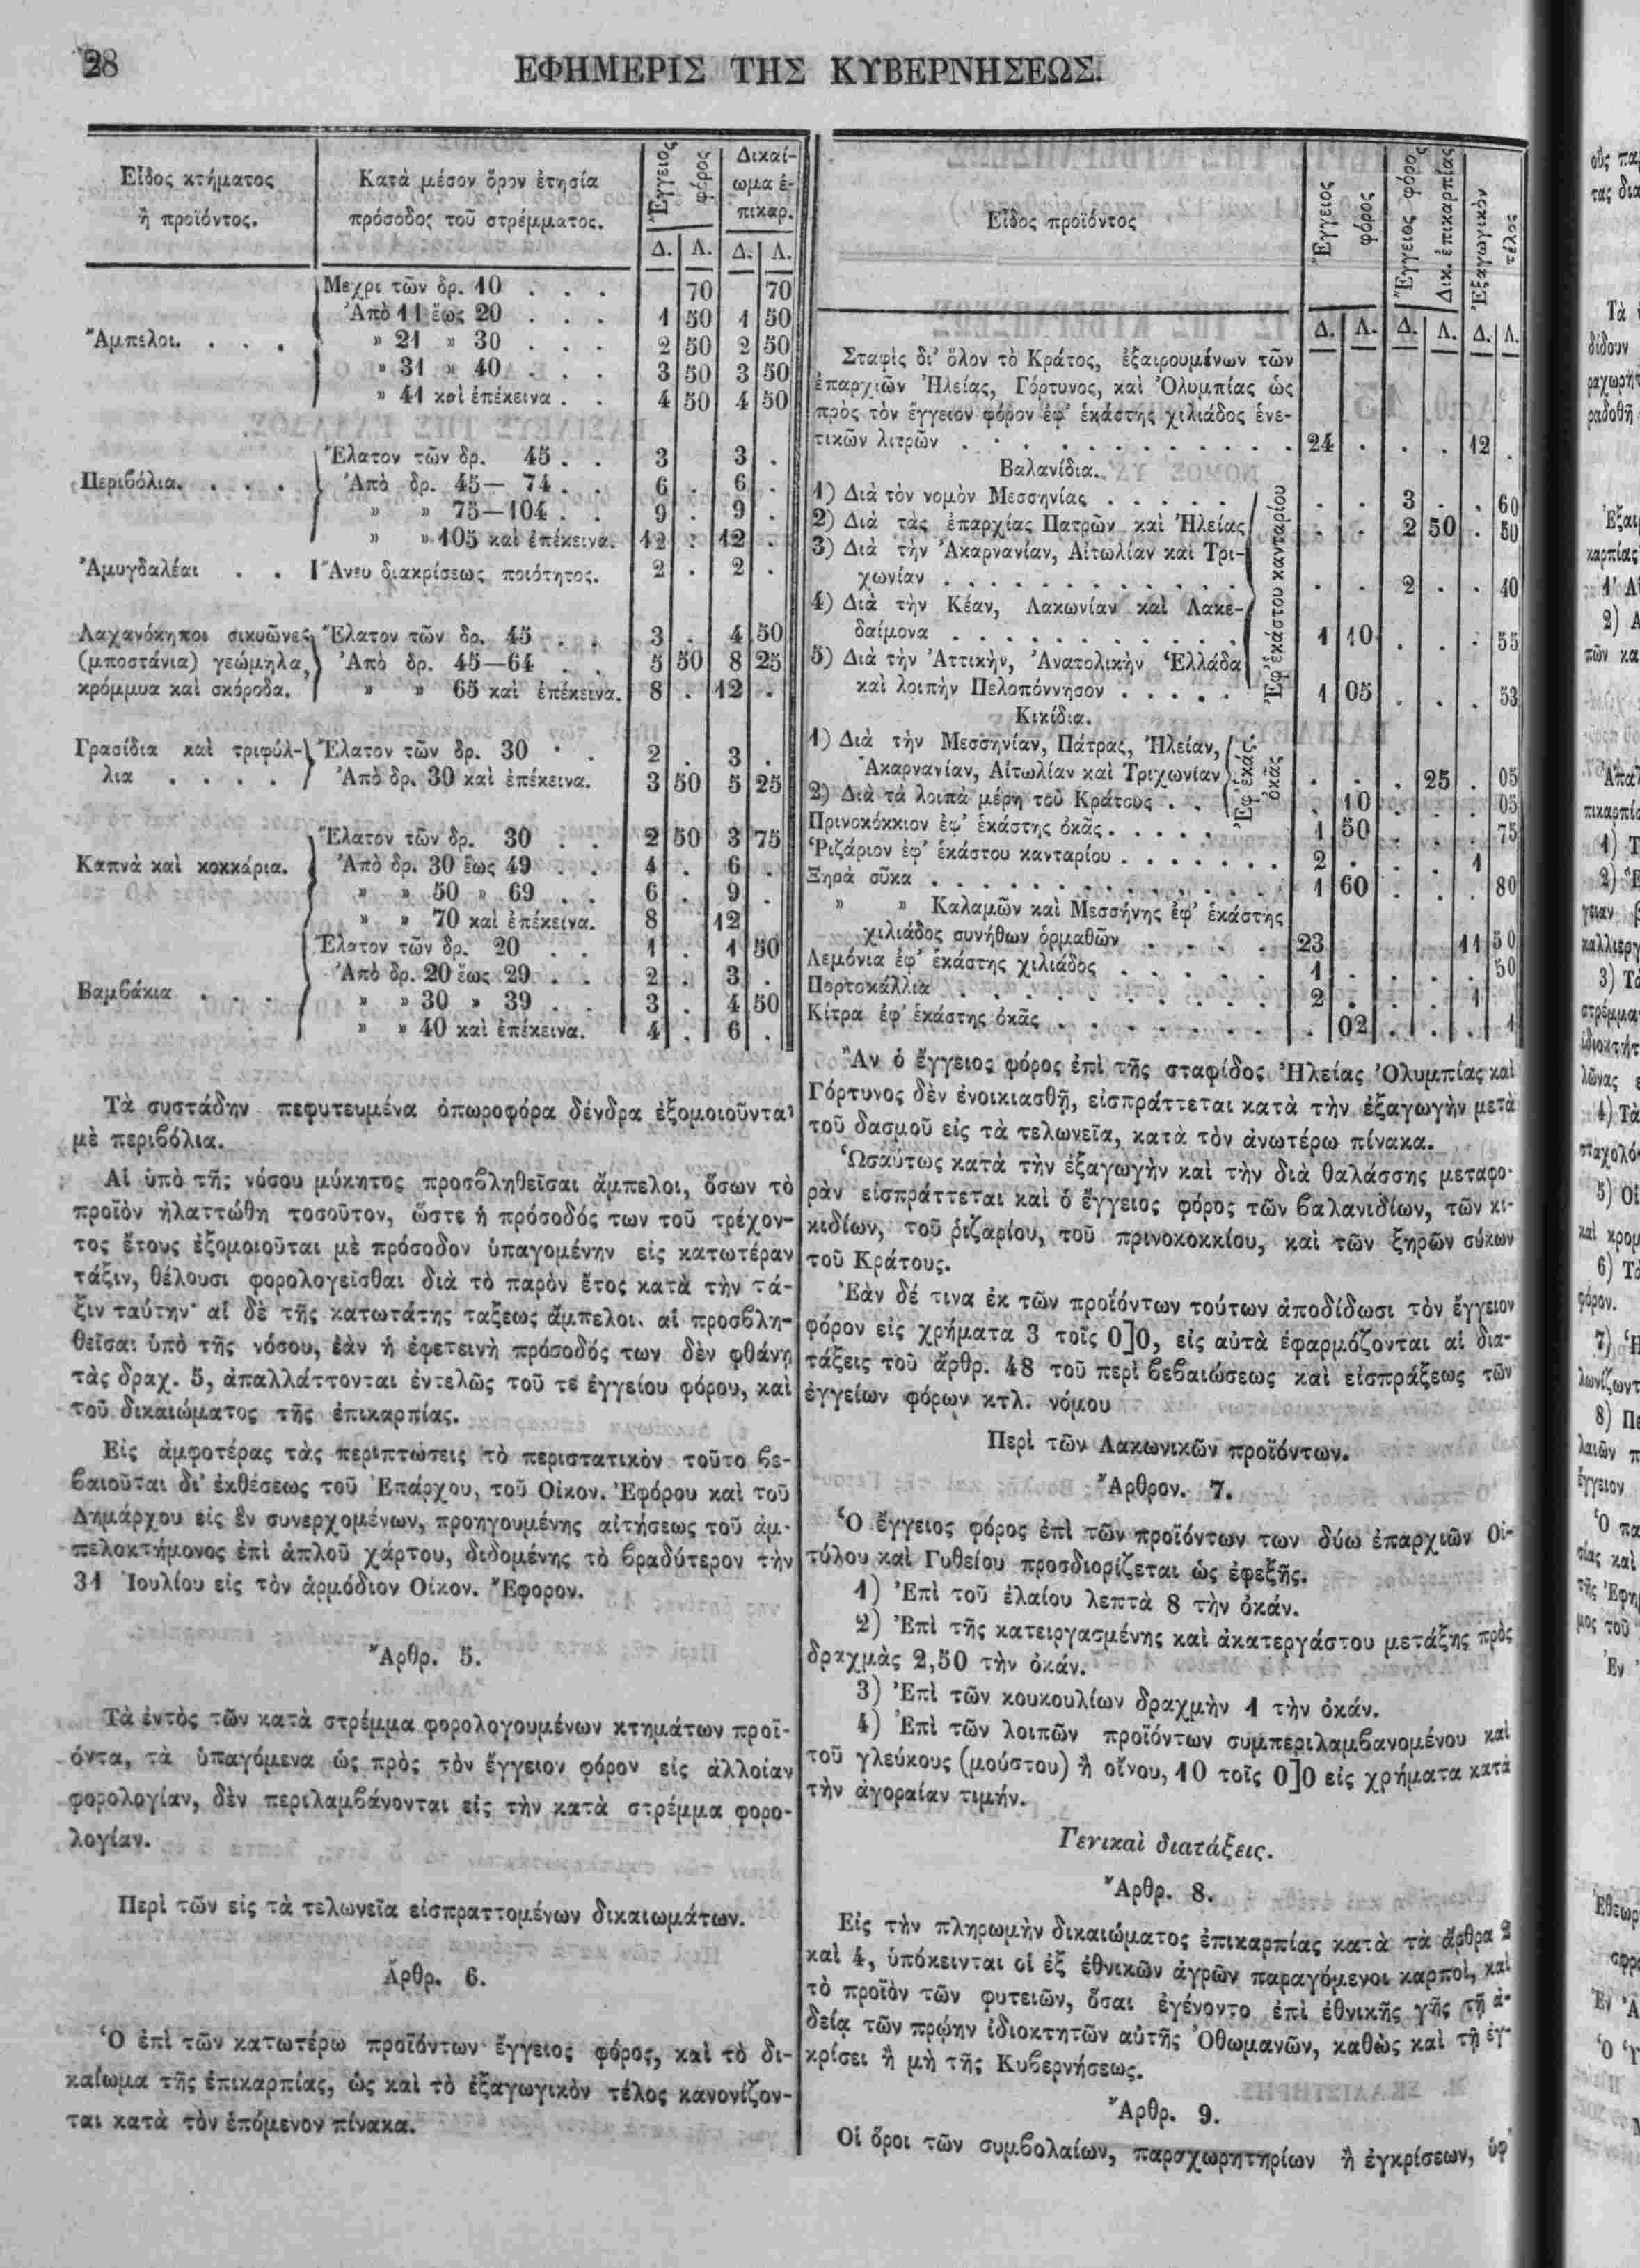 28
ΕΦΗΜΕΡΙΣ ΤΗΣ ΚΥΒΕΡΝΗΣΕΩΣ.
Εἶδος κτήματος
ἢ προϊόντος.
Κατὰ μέσον ὅρον ἐτησία
πρόσοδος τοῦ στρέμματος.
Ἔγγειος φόρος
Δικαί-
ωμα ἐ-
πικαρ.
Δ. Λ. Δ. Λ.
Μεχρι τῶν δρ. 10 . . . 70 70
Ἀπὸ 11 ἕως 20 . . . 1 50 1 50
Ἄμπελοι. . . . » 21 » 30 . . . 2 50 2 50
» 31 » 40 . . . 3 50 3 50
» 41 καὶ ἐπέκεινα . . 4 50 4 50
Ἔλατον τῶν δρ. 45 . . 3 3 .
Περιβόλια. . . . Ἀπὸ δρ. 45— 74 . . 6 . 6 .
» » 75—104 . . 9 . 9 .
» » 105 καὶ ἐπέκεινα. 12 . 12 .
Ἀμυγδαλέαι . . Ἄνευ διακρίσεως ποιότητος. 2 . 2 .
Λαχανόκηποι σικυῶνες Ἔλατον τῶν δρ. 45 . . 3 . 4 50
(μποστάνια) γεώμηλα, Ἀπὸ δρ. 45—64 . . 5 50 8 25
κρόμμυα καὶ σκόροδα. » » 65 καὶ ἐπέκεινα. 8 . 12 .
Γρασίδια καὶ τριφύλ- Ἔλατον τῶν δρ. 30 . . 2 . 3 .
λια . . . . Ἀπὸ δρ. 30 καὶ ἐπέκεινα. 3 50 5 25
Ἔλατον τῶν δρ. 30 . . 2 50 3 75
Καπνὰ καὶ κοκκάρια. Ἀπὸ δρ. 30 ἕως 49 . . 4 . 6 .
» » 50 » 69 . . 6 . 9 .
» » 70 καὶ ἐπέκεινα. 8 12
Ἔλατον τῶν δρ. 20 . . 1 . 1 50
Ἀπὸ δρ. 20 ἕως 29 . . 2 . 3 .
Βαμβάκια . . . » » 30 » 39 . . 3 . 4 50
» » 40 καὶ ἐπέκεινα. 4 . 6 .
Τὰ συστάδην πεφυτευμένα ὀπωροφόρα δένδρα ἐξομοιοῦνται
μὲ περιβόλια.
Αἱ ὑπὸ τῆς νόσου μύκητος προσβληθεῖσαι ἄμπελοι, ὅσων τὸ
προϊὸν ἠλαττώθη τοσοῦτον, ὥστε ἡ πρόσοδός των τοῦ τρέχον-
τος ἔτους ἐξομοιοῦται μὲ πρόσοδον ὑπαγομένην εἰς κατωτέραν
τάξιν, θέλουσι φορολογεῖσθαι διὰ τὸ παρὸν ἔτος κατὰ τὴν τά-
ξιν ταύτην· αἱ δὲ τῆς κατωτάτης ταξεως ἄμπελοι. αἱ προσβλη-
θεῖσαι ὑπὸ τῆς νόσου, ἐὰν ἡ ἐφετεινὴ πρόσοδός των δὲν φθάνῃ
τὰς δραχ. 5, ἀπαλλάττονται ἐντελῶς τοῦ τε ἐγγείου φόρου, καὶ
τοῦ δικαιώματος τῆς ἐπικαρπίας.
Εἰς ἀμφοτέρας τὰς περιπτώσεις τὸ περιστατικὸν τοῦτο βε-
βαιοῦται δι' ἐκθέσεως τοῦ Ἐπάρχου, τοῦ Οἰκον. Ἐφόρου καὶ τοῦ
Δημάρχου εἰς ἓν συνερχομένων, προηγουμένης αἰτήσεως τοῦ ἀμ-
πελοκτήμονος ἐπὶ ἁπλοῦ χάρτου, διδομένης τὸ βραδύτερον τὴν
31 Ἰουλίου εἰς τὸν ἁρμόδιον Οἰκον. Ἔφορον.
Ἄρθρ. 5.
Τὰ ἐντὸς τῶν κατὰ στρέμμα φορολογουμένων κτημάτων προϊ-
όντα, τὰ ὑπαγόμενα ὡς πρὸς τὸν ἔγγειον φόρον εἰς ἀλλοίαν
φορολογίαν, δὲν περιλαμβάνονται εἰς τὴν κατὰ στρέμμα φορο-
λογίαν.
Περὶ τῶν εἰς τὰ τελωνεῖα εἰσπραττομένων δικαιωμάτων.
Ἄρθρ. 6.
Ὁ ἐπὶ τῶν κατωτέρω προϊόντων ἔγγειος φόρος, καὶ τὸ δι-
καίωμα τῆς ἐπικαρπίας, ὡς καὶ τὸ ἐξαγωγικὸν τέλος κανονίζον-
ται κατὰ τὸν ἑπόμενον πίνακα.
Εἶδος προϊόντος
Ἔγγειος φόρος
Ἔγγειος φόρος Δικ. ἐπικαρπίας
Ἐξαγωγικὸν τέλος
Δ. Λ. Δ. Λ. Δ. Λ.
Σταφὶς δι' ὅλον τὸ Κράτος, ἐξαιρουμένων τῶν
ἐπαρχιῶν Ἠλείας, Γόρτυνος, καὶ Ὀλυμπίας ὡς
πρὸς τὸν ἔγγειον φόρον ἐφ' ἑκάστης χιλιάδος ἑνε-
τικῶν λιτρῶν . . . . . . . . 24 . . . 12 .
Βαλανίδια.
1) Διὰ τὸν νομὸν Μεσσηνίας . . . . . . . 3 . . 60
2) Διὰ τὰς ἐπαρχίας Πατρῶν καὶ Ἠλείας . . 2 50 . 50
3) Διὰ τὴν Ἀκαρνανίαν, Αἰτωλίαν καὶ Τρι-
χωνίαν . . . . . . . . . . 2 . . 40
4) Διὰ τὴν Κέαν, Λακωνίαν καὶ Λακε-
δαίμονα . . . . . . . . 1 10 . . . 55
5) Διὰ τὴν Ἀττικὴν, Ἀνατολικὴν Ἑλλάδα
καὶ λοιπὴν Πελοπόννησον . . . . . 1 05 . . . 53
Ἐφ' ἑκάστου κανταρίου
Κικίδια.
1) Διὰ τὴν Μεσσηνίαν, Πάτρας, Ἠλείαν,
Ἀκαρνανίαν, Αἰτωλίαν καὶ Τριχωνίαν . . . 25 . 05
2) Διὰ τὰ λοιπὰ μέρη τοῦ Κράτους . . . 10 . . . 05
Ἐφ' ἑκάσ. ὀκᾶς
Πρινοκόκκιον ἐφ' ἑκάστης ὀκᾶς. . . . . 1 50 . . . 75
Ῥιζάριον ἐφ' ἑκάστου κανταρίου . . . . . . . 2 . . . 1
Ξηρὰ σῦκα . . . . . . . . . . 1 60 . . . 80
» » Καλαμῶν καὶ Μεσσήνης ἐφ' ἑκάστης
χιλιάδος συνήθων ὁρμαθῶν . . . . 23 11 50
Λεμόνια ἐφ' ἑκάστης χιλιάδος . . . . . 1 . . . . 50
Πορτοκάλλια . . . . . . . . . 2 . . . 1
Κίτρα ἐφ' ἑκάστης ὀκᾶς . . . . . . . . 02 . . . 1
Ἂν ὁ ἔγγειος φόρος ἐπὶ τῆς σταφίδος Ἠλείας Ὀλυμπίας καὶ
Γόρτυνος δὲν ἐνοικιασθῇ, εἰσπράττεται κατὰ τὴν ἐξαγωγὴν μετὰ
τοῦ δασμοῦ εἰς τὰ τελωνεῖα, κατὰ τὸν ἀνωτέρω πίνακα.
Ὡσαύτως κατὰ τὴν ἐξαγωγὴν καὶ τὴν διὰ θαλάσσης μεταφο-
ρὰν εἰσπράττεται καὶ ὁ ἔγγειος φόρος τῶν βαλανιδίων, τῶν κι-
κιδίων, τοῦ ῥιζαρίου, τοῦ πρινοκοκκίου, καὶ τῶν ξηρῶν σύκων
τοῦ Κράτους.
Ἐὰν δέ τινα ἐκ τῶν προϊόντων τούτων ἀποδίδωσι τὸν ἔγγειον
φόρον εἰς χρήματα 3 τοῖς 0]0, εἰς αὐτὰ ἐφαρμόζονται αἱ δια-
τάξεις τοῦ ἄρθρ. 48 τοῦ περὶ βεβαιώσεως καὶ εἰσπράξεως τῶν
ἐγγείων φόρων κτλ. νόμου
Περὶ τῶν Λακωνικῶν προϊόντων.
Ἄρθρον. 7.
Ὁ ἔγγειος φόρος ἐπὶ τῶν προϊόντων των δύω ἐπαρχιῶν Οἰ-
τύλου καὶ Γυθείου προσδιορίζεται ὡς ἐφεξῆς.
1) Ἐπὶ τοῦ ἐλαίου λεπτὰ 8 τὴν ὀκάν.
2) Ἐπὶ τῆς κατειργασμένης καὶ ἀκατεργάστου μετάξης πρὸς
δραχμὰς 2,50 τὴν ὀκάν.
3) Ἐπὶ τῶν κουκουλίων δραχμὴν 1 τὴν ὀκάν.
4) Ἐπὶ τῶν λοιπῶν προϊόντων συμπεριλαμβανομένου καὶ
τοῦ γλεύκους (μούστου) ἢ οἴνου, 10 τοῖς 0]0 εἰς χρήματα κατὰ
τὴν ἀγοραίαν τιμήν.
Γενικαὶ διατάξεις.
Ἄρθρ. 8.
Εἰς τὴν πληρωμὴν δικαιώματος ἐπικαρπίας κατὰ τὰ ἄρθρα 2
καὶ 4, ὑπόκεινται οἱ ἐξ ἐθνικῶν ἀγρῶν παραγόμενοι καρποὶ, καὶ
τὸ προϊὸν τῶν φυτειῶν, ὅσαι ἐγένοντο ἐπὶ ἐθνικῆς γῆς τῇ ἀ-
δείᾳ τῶν πρῴην ἰδιοκτητῶν αὐτῆς Ὀθωμανῶν, καθὼς καὶ τῇ ἐγ-
κρίσει ἢ μὴ τῆς Κυβερνήσεως.
Ἄρθρ. 9.
Οἱ ὅροι τῶν συμβολαίων, παραχωρητηρίων ἢ ἐγκρίσεων, ὑφ'